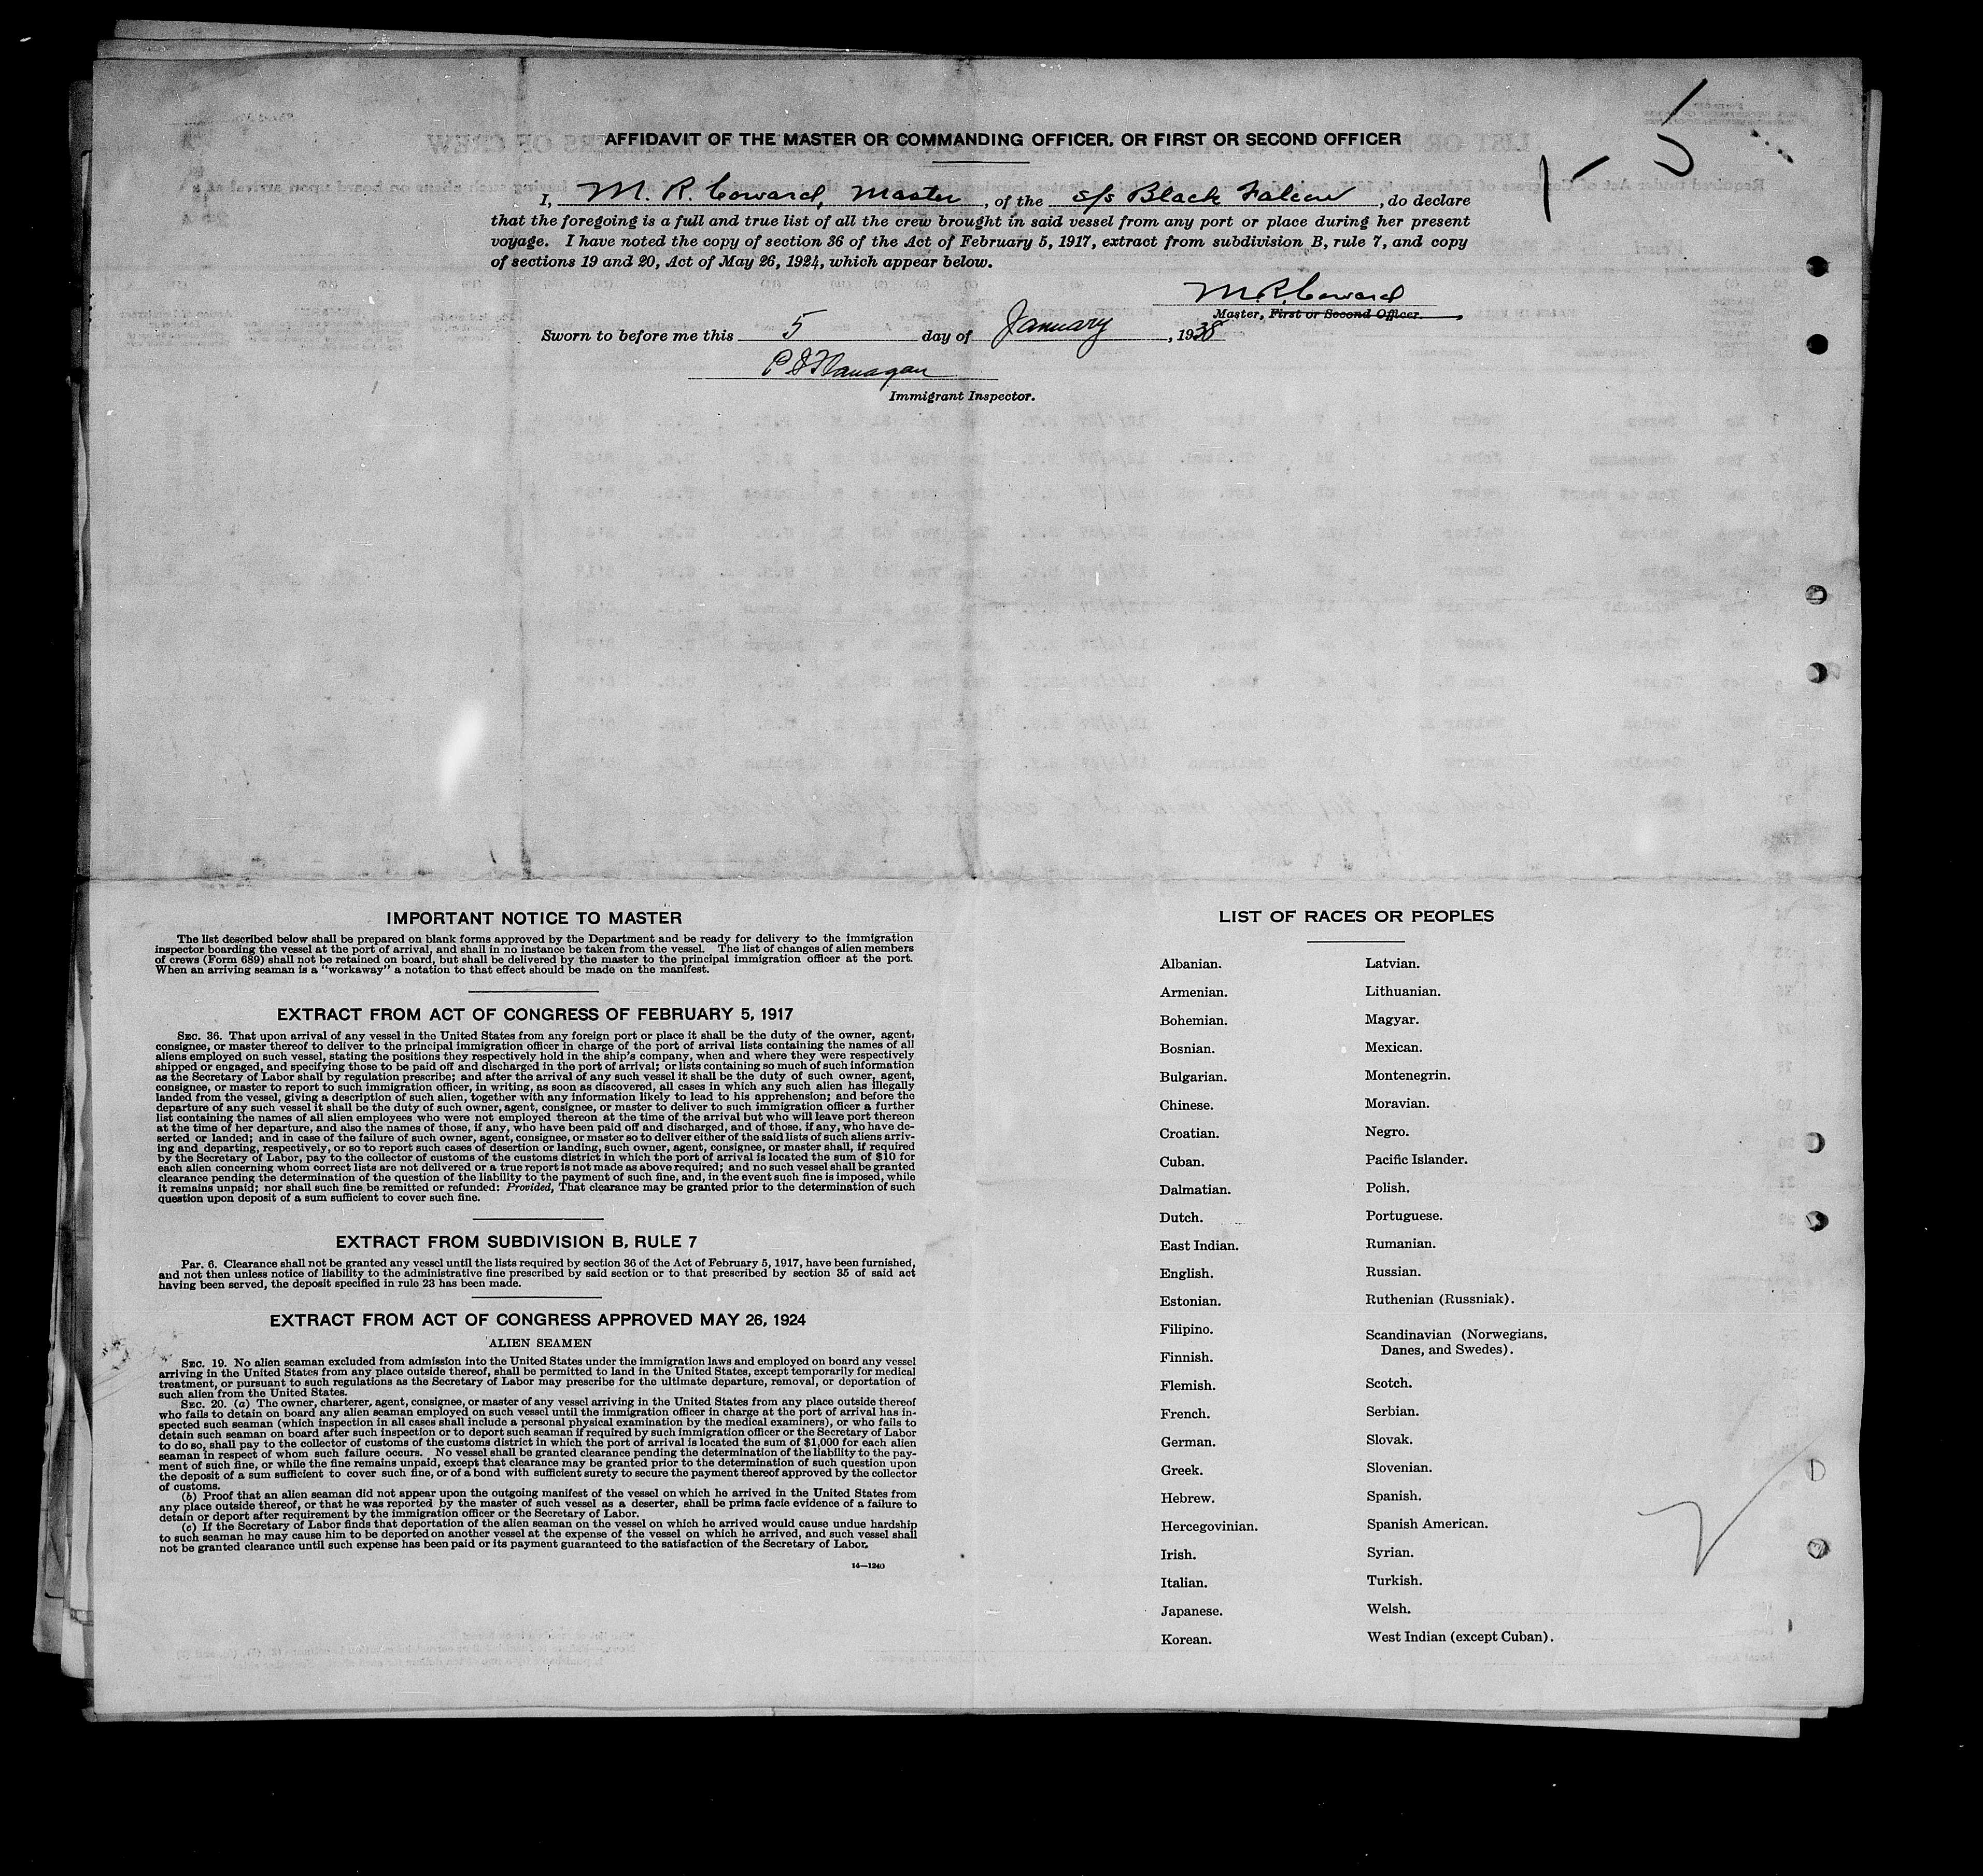 AFFIDAVIT OF THE MASTER OR COMMANDING OFFICER, OR FIRST OR SECOND OFFICER
1-5
I, M. R. Coward, Master, of the s/s Black Falcon, do declare
that the foregoing is a full and true list of all the crew brought in said vessel from any port or place during her present
voyage. I have noted the copy of section 36 of the Act of February 5, 1917, extract from subdivision B, rule 7, and copy
of sections 19 and 20, Act of May 26, 1924, which appear below.
M. R. Coward
Master, First or Second Officer.
Sworn to before me this 5 day of January, 1938
P J Flanagan
Immigrant Inspector.
IMPORTANT NOTICE TO MASTER
The list described below shall be prepared on blank forms approved by the Department and be ready for delivery to the immigration
inspector boarding the vessel at the port of arrival, and shall in no instance be taken from the vessel. The list of changes of alien members
of crews (Form 689) shall not be retained on board, but shall be delivered by the master to the principal immigration officer at the port.
When an arriving seaman is a "workaway" a notation to that effect should be made on the manifest.
EXTRACT FROM ACT OF CONGRESS OF FEBRUARY 5, 1917
SEC. 36. That upon arrival of any vessel in the United States from any foreign port or place it shall be the duty of the owner, agent,
consignee, or master thereof to deliver to the principal immigration officer in charge of the port of arrival lists containing the names of all
aliens employed on such vessel, stating the positions they respectively hold in the ship's company, when and where they were respectively
shipped or engaged, and specifying those to be paid off and discharged in the port of arrival; or lists containing so much of such information
as the Secretary of Labor shall by regulation prescribe; and after the arrival of any such vessel it shall be the duty of such owner, agent,
consignee, or master to report to such immigration officer, in writing, as soon as discovered, all cases in which any such alien has illegally
landed from the vessel, giving a description of such alien, together with any information likely to lead to his apprehension; and before the
departure of any such vessel it shall be the duty of such owner, agent, consignee, or master to deliver to such immigration officer a further
list containing the names of all alien employees who were not employed thereon at the time of the arrival but who will leave port thereon
at the time of her departure, and also the names of those, if any, who have been paid off and discharged, and of those, if any, who have de-
serted or landed; and in case of the failure of such owner, agent, consignee, or master so to deliver either of the said lists of such aliens arriv-
ing and departing, respectively, or so to report such cases of desertion or landing, such owner, agent, consignee, or master shall, if required
by the Secretary of Labor, pay to the collector of customs of the customs district in which the port of arrival is located the sum of $10 for
each alien concerning whom correct lists are not delivered or a true report is not made as above required; and no such vessel shall be granted
clearance pending the determination of the question of the liability to the payment of such fine, and, in the event such fine is imposed, while
it remains unpaid; nor shall such fine be remitted or refunded: Provided, That clearance may be granted prior to the determination of such
question upon deposit of a sum sufficient to cover such fine.
EXTRACT FROM SUBDIVISION B, RULE 7
Par. 6. Clearance shall not be granted any vessel until the lists required by section 36 of the Act of February 5, 1917, have been furnished,
and not then unless notice of liability to the administrative fine prescribed by said section or to that prescribed by section 35 of said act
having been served, the deposit specified in rule 23 has been made.
EXTRACT FROM ACT OF CONGRESS APPROVED MAY 26, 1924
ALIEN SEAMEN
SEC. 19. No alien seaman excluded from admission into the United States under the immigration laws and employed on board any vessel
arriving in the United States from any place outside thereof, shall be permitted to land in the United States, except temporarily for medical
treatment, or pursuant to such regulations as the Secretary of Labor may prescribe for the ultimate departure, removal, or deportation of
such alien from the United States.
SEC. 20. (a) The owner, charterer, agent, consignee, or master of any vessel arriving in the United States from any place outside thereof
who fails to detain on board any alien seaman employed on such vessel until the immigration officer in charge at the port of arrival has in-
spected such seaman (which inspection in all cases shall include a personal physical examination by the medical examiners), or who fails to
detain such seaman on board after such inspection or to deport such seaman if required by such immigration officer or the Secretary of Labor
to do so, shall pay to the collector of customs of the customs district in which the port of arrival is located the sum of $1,000 for each alien
seaman in respect of whom such failure occurs. No vessel shall be granted clearance pending the determination of the liability to the pay-
ment of such fine, or while the fine remains unpaid, except that clearance may be granted prior to the determination of such question upon
the deposit of a sum sufficient to cover such fine, or of a bond with sufficient surety to secure the payment thereof approved by the collector
of customs.
(b) Proof that an alien seaman did not appear upon the outgoing manifest of the vessel on which he arrived in the United States from
any place outside thereof, or that he was reported by the master of such vessel as a deserter, shall be prima facie evidence of a failure to
detain or deport after requirement by the immigration officer or the Secretary of Labor.
(c) If the Secretary of Labor finds that deportation of the alien seaman on the vessel on which he arrived would cause undue hardship
to such seaman he may cause him to be deported on another vessel at the expense of the vessel on which he arrived, and such vessel shall
not be granted clearance until such expense has been paid or its payment guaranteed to the satisfaction of the Secretary of Labor.
14—1240
LIST OF RACES OR PEOPLES
Albanian.
Armenian.
Bohemian.
Bosnian.
Bulgarian.
Chinese.
Croatian.
Cuban.
Dalmatian.
Dutch.
East Indian.
English.
Estonian.
Filipino.
Finnish.
Flemish.
French.
German.
Greek.
Hebrew.
Hercegovinian.
Irish.
Italian.
Japanese.
Korean.
Latvian.
Lithuanian.
Magyar.
Mexican.
Montenegrin.
Moravian.
Negro.
Pacific Islander.
Polish.
Portuguese.
Rumanian.
Russian.
Ruthenian (Russniak).
Scandinavian (Norwegians,
Danes, and Swedes).
Scotch.
Serbian.
Slovak.
Slovenian.
Spanish.
Spanish American.
Syrian.
Turkish.
Welsh.
West Indian (except Cuban).